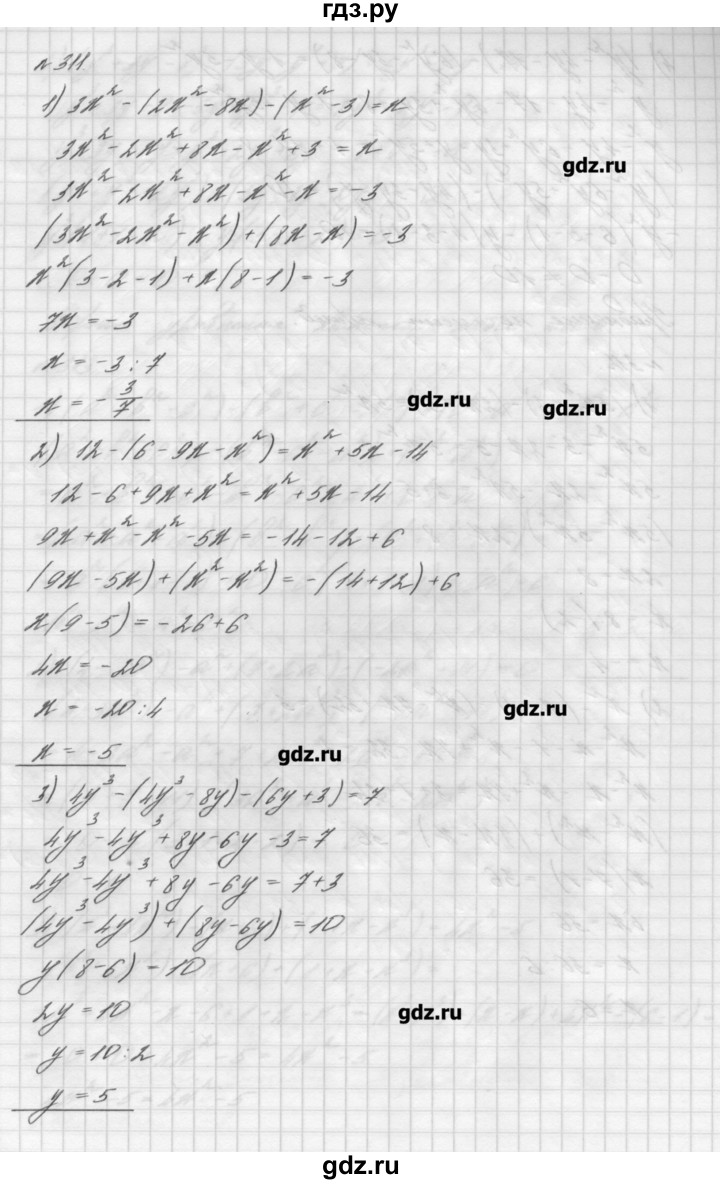 гдз.ру
№311
1) 3x² - (2x² - 8x) - (x² - 3) = x
3x² - 2x² + 8x - x² + 3 = x
gdz.ru
3x² - 2x² + 8x - x² - x = -3
(3x² - 2x² - x²) + (8x - x) = -3
x²(3 - 2 - 1) + x(8 - 1) = -3
7x = -3
x = -3 : 7
x = -3/7
gdz.ru
gdz.ru
2) 12 - (6 - 9x - x²) = x² + 5x - 14
12 - 6 + 9x + x² = x² + 5x - 14
9x + x² - x² - 5x = -14 - 12 + 6
(9x - 5x) + (x² - x²) = -(14 + 12) + 6
x(9 - 5) = -26 + 6
4x = -20
x = -20 : 4
gdz.ru
x = -5
gdz.ru
3) 4y³ - (4y³ - 8y) - (6y + 3) = 7
4y³ - 4y³ + 8y - 6y - 3 = 7
4y³ - 4y³ + 8y - 6y = 7 + 3
(4y³ - 4y³) + (8y - 6y) = 10
y(8 - 6) - 10
2y = 10
gdz.ru
y = 10 : 2
y = 5
gdz.ru